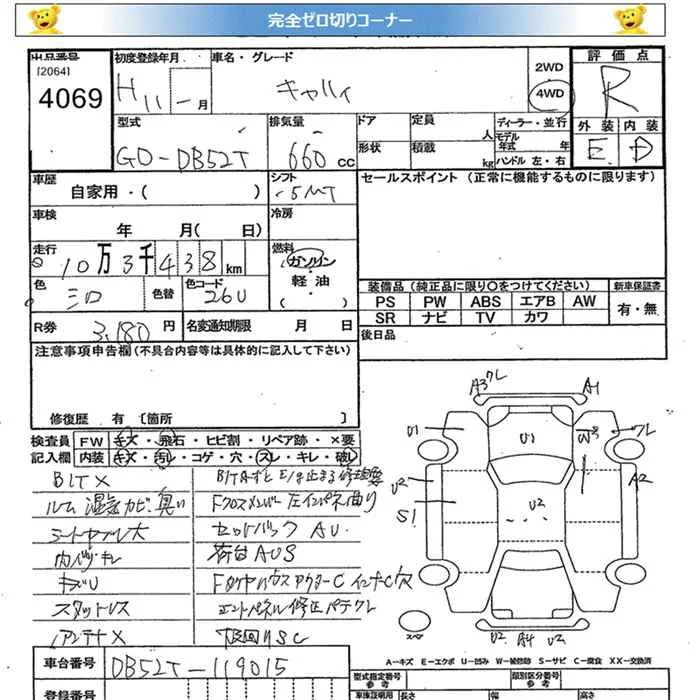 完全ゼロ切りコーナー
出品番号
[2064]
4069
初度登録年月
H 11 - 月
車名・グレード
キャリィ
2WD
4WD
評価点
R
外装 内装
E D
型式
GD-DB52T
排気量
660 cc
ドア
定員
人
ディーラー・並行
形状
積載
kg
モデル年式 年
ハンドル 左・右
車歴
自家用・( )
シフト
5MT
セールスポイント (正常に機能するものに限ります)
車検
年 月( 日)
冷房
走行
10万3千438km
燃料
ガソリン・軽油・( )
色
シロ
色替
色コード
26U
装備品 (純正品に限り○をつけてください)
新車保証書
PS PW ABS エアB AW
有・無
SR ナビ TV カワ
R券 3,180 円
名変通知期限 月 日
後日品
注意事項申告欄 (不具合内容等は具体的に記入して下さい)
修復歴 有 [箇所 ]
検査員 FW キズ・飛石・ヒビ割・リペア跡・×要
記入欄 内装 キズ・汚れ・コゲ・穴・スレ・キレ・破レ
BIT×
ルーム湿気カビ臭い
シートヤブレ大
内バリキレ
キズU
スタットレス
アンテナ×
Fクロスメンバ 左インパネ曲り
セットバック AU
荷台AUS
Fタイヤハウスアウター C インナーC穴
エンドパネル修正 パテクレ
下回りSC
A3 クレ
A1
U1
U1
W3
クレ
U2
A2
S1
U2
スペア
U2 A4 U2
A-キズ E-エクボ U-凹み W-補修跡 S-サビ C-腐食 XX-交換済
車台番号
DB52T-119015
型式指定番号 参考
類別区分番号 参考
登録番号
車庫証明用 参考
長さ
幅
高さ